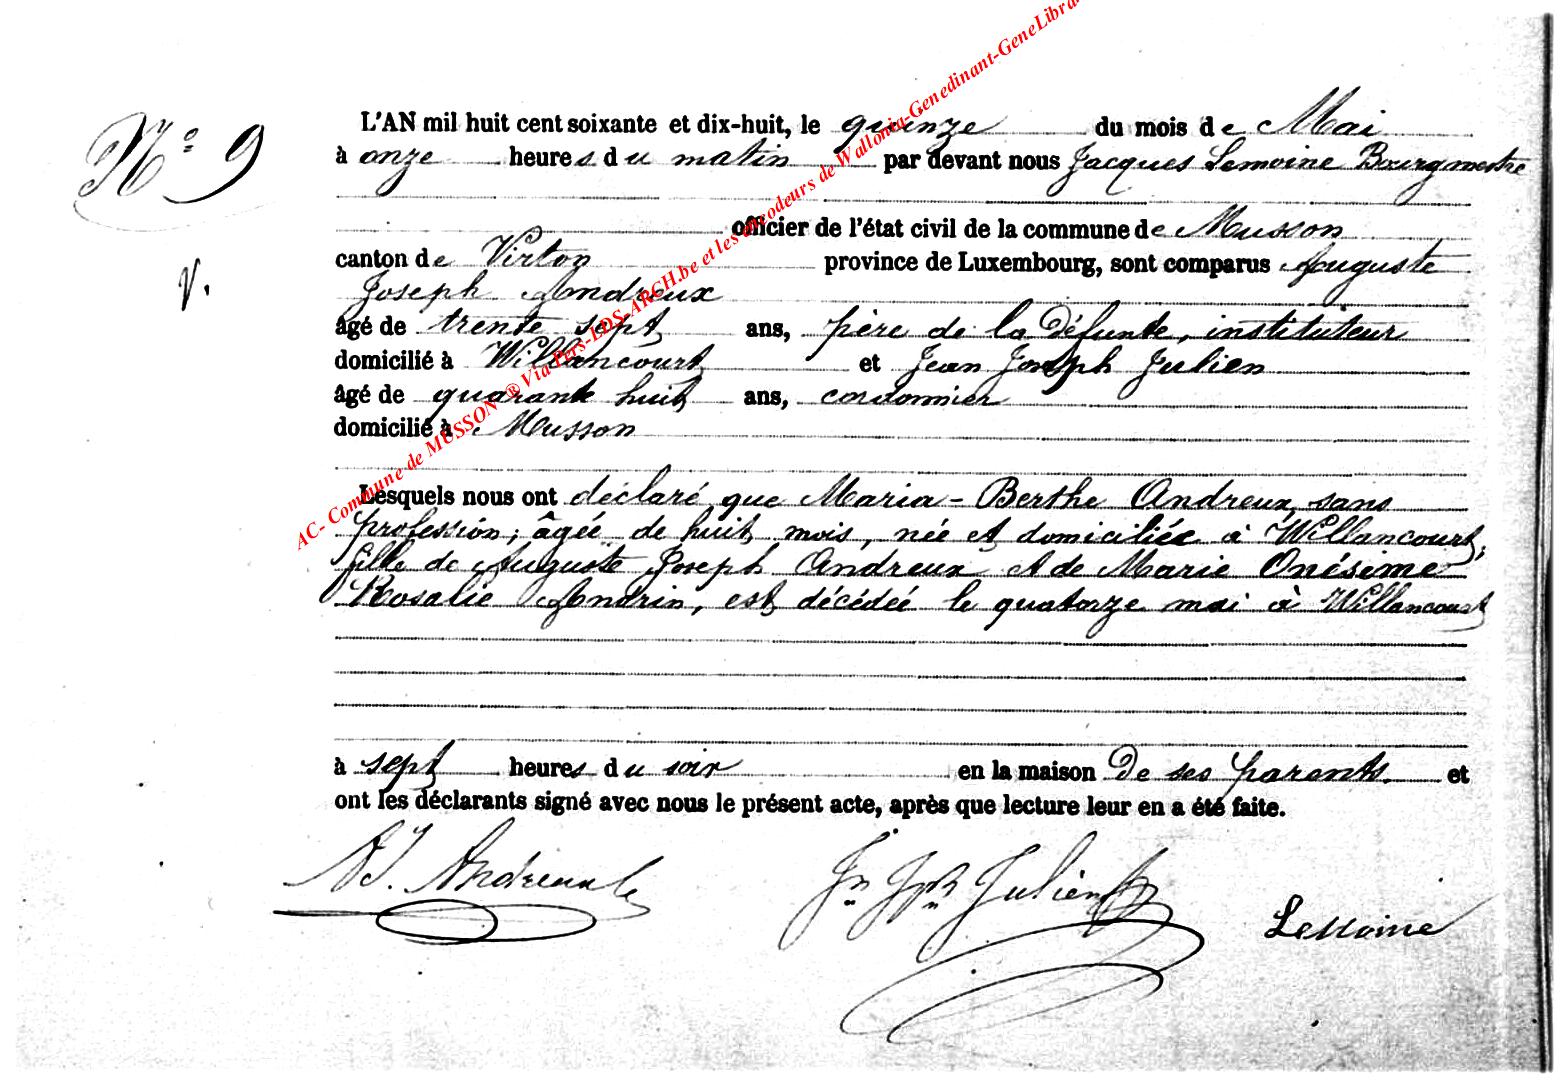 N° 9
V.
L'AN mil huit cent soixante et dix-huit, le quinze du mois de Mai
à onze heures du matin par devant nous Jacques Lemoine Bourgmestre
officier de l'état civil de la commune de Musson
canton de Virton province de Luxembourg, sont comparus Auguste
Joseph Andreux
âgé de trente sept ans, père de la Défunte, instituteur
domicilié à Willancourt et Jean Joseph Julien
âgé de quarante huit ans, cordonnier
domicilié à Musson
Lesquels nous ont déclaré que Maria-Berthe Andreux, sans
profession, âgée de huit mois, née et domiciliée à Willancourt,
fille de Auguste Joseph Andreux et de Marie Onésime
Rosalie Andrin, est décédée le quatorze mai à Willancourt
à sept heures du soir en la maison De ses parents. et
ont les déclarants signé avec nous le présent acte, après que lecture leur en a été faite.
AJ. Andreux Jn Jph Julien Lemoine
AC- Commune de MUSSON ® Via Pers-LDS-ARCH.be et les encodeurs de Wallonia-Genedinant-GeneLibra